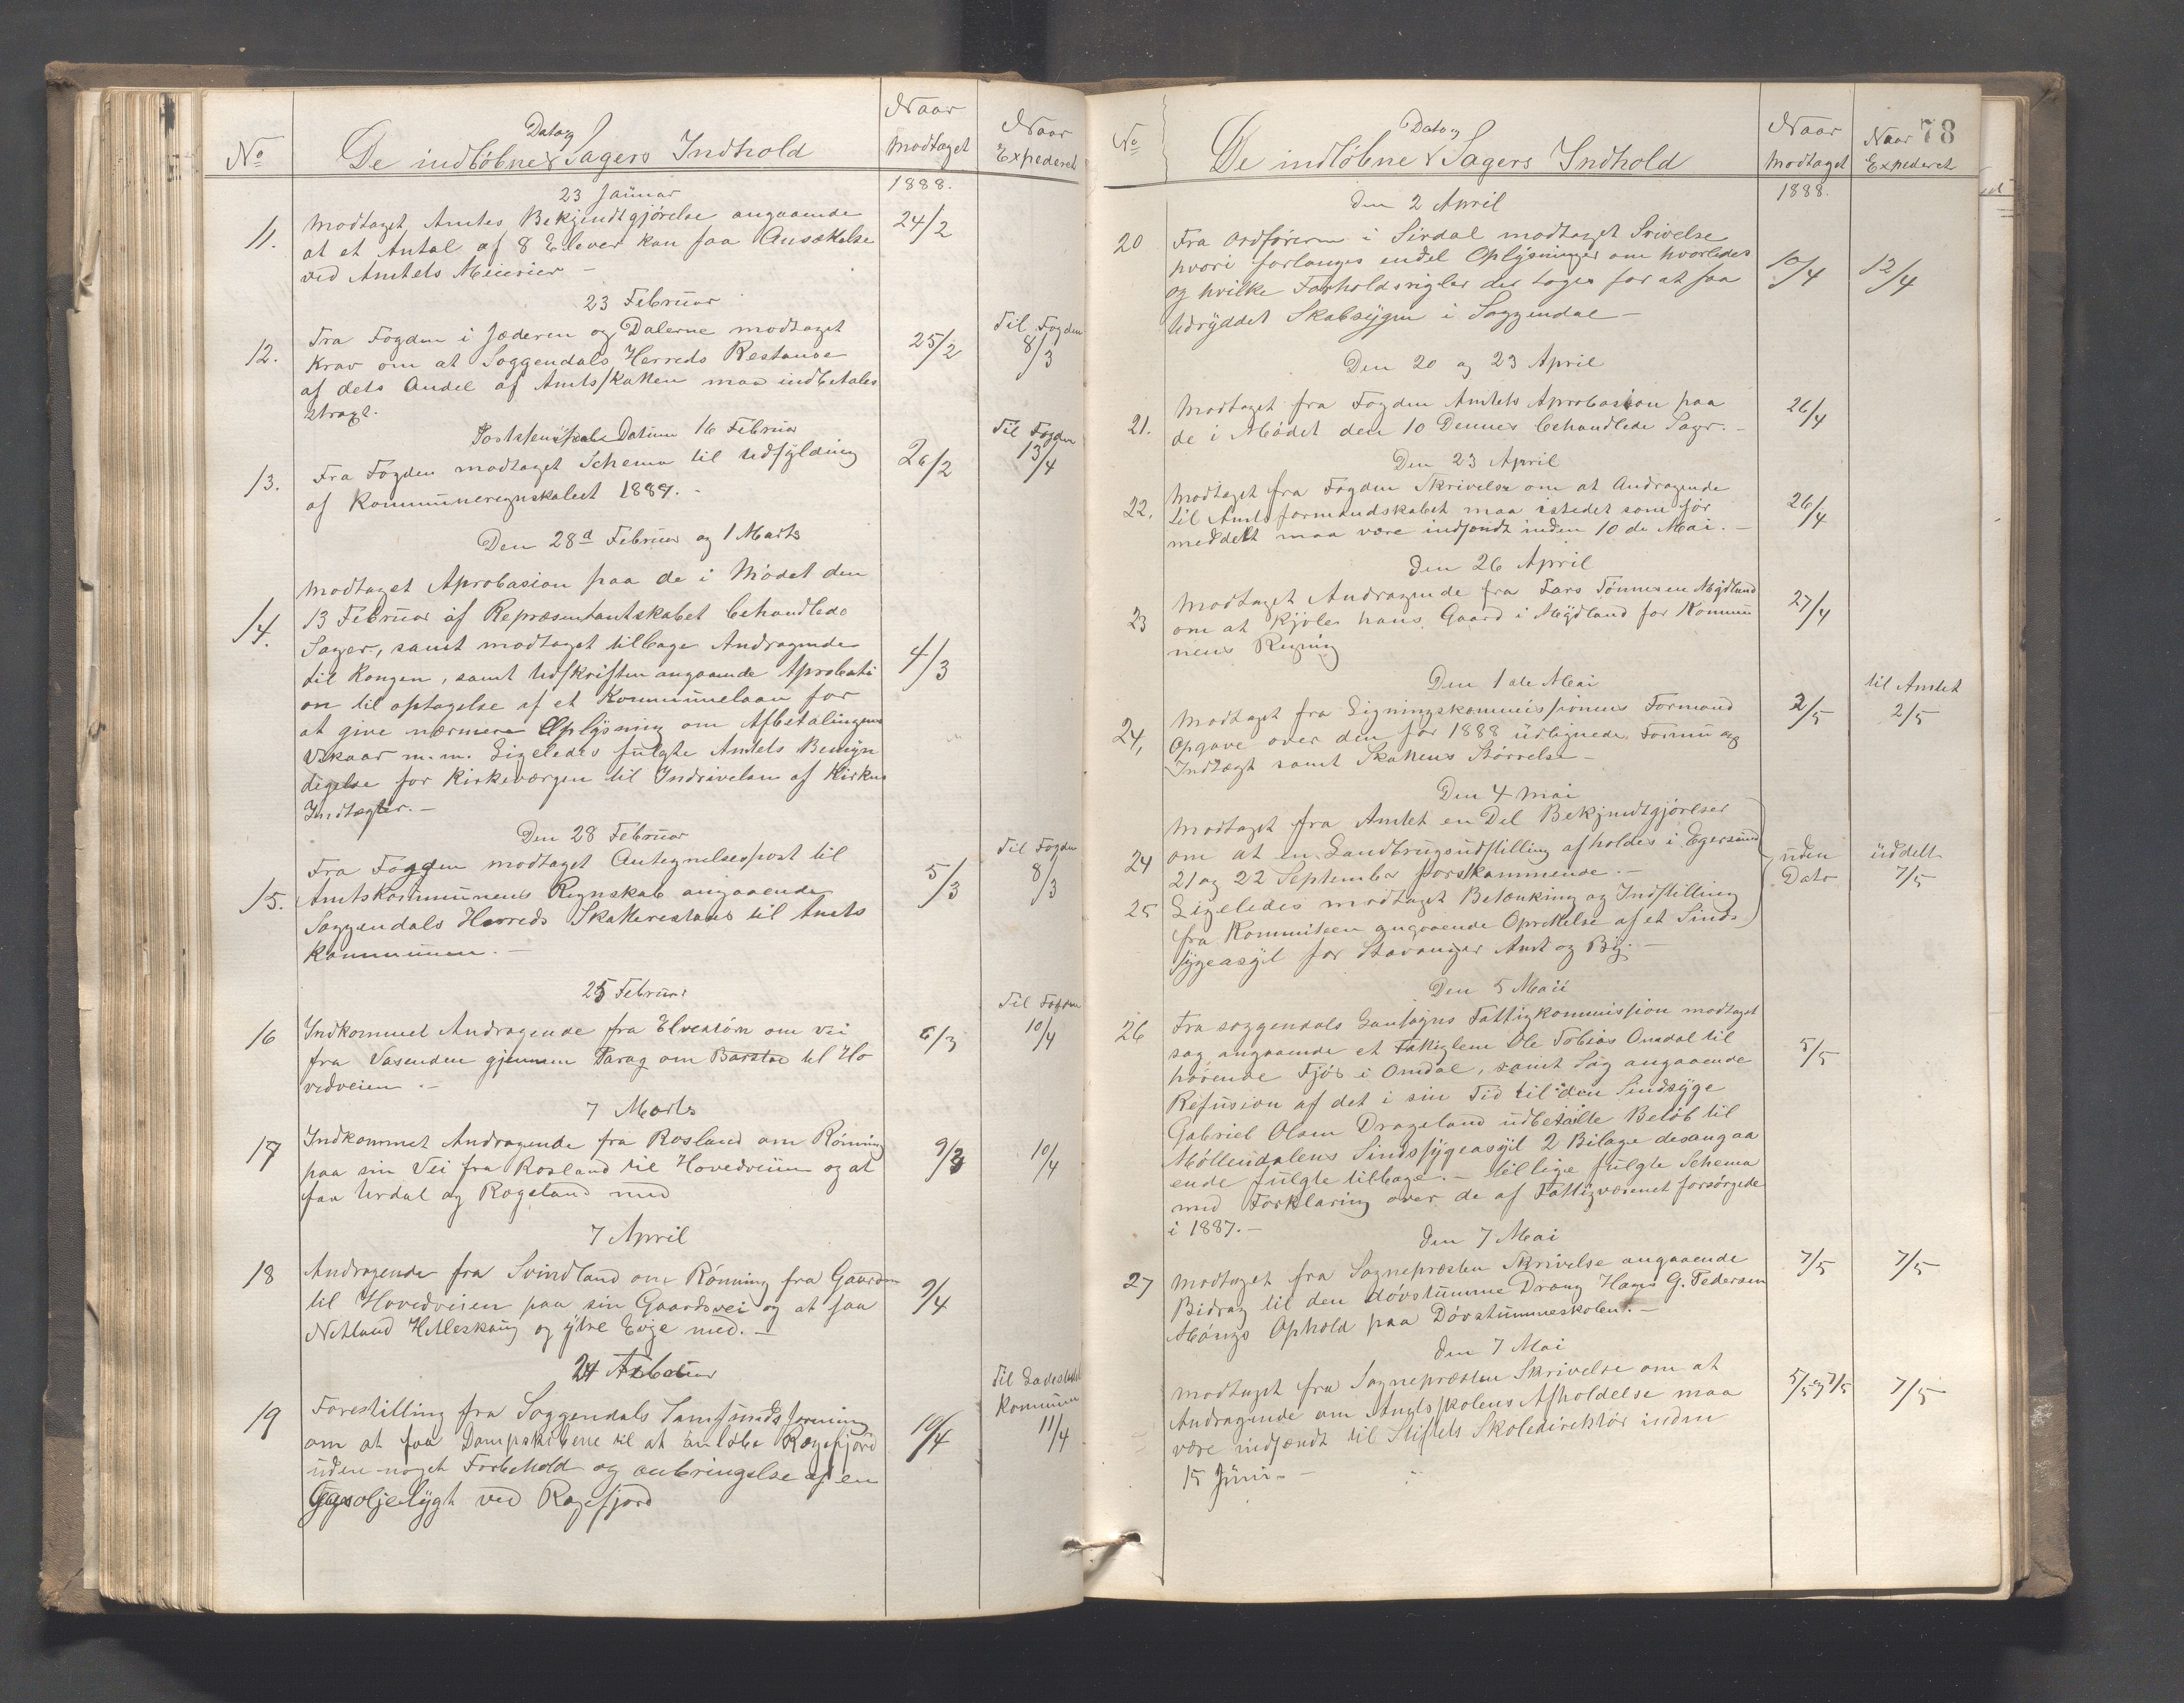 No
Dato og
De indløbne Sagers Indhold
Naar
Modtaget
Naar
Expederet
1888.
23 Januar
11. Modtaget Amtes Bekjendtgjørelse angaaende 24/2
at et Antal af 8 Elever kan faa Ansættelse
ved Amtets Meierier –
23 Februar
12. Fra Fogden i Jæderen og Dalerne modtaget 25/2 Til Fogden 8/3
Krav om at Soggendals Herreds Restance
af dets Andel af Amtsskatten maa indbetales
strags.
Datum 16 Februar
13. Fra Fogden modtaget Schema til Udfylding 26/2 Til Fogden 13/4
af Kommuneregnskabet 1887. -
Den 28d Februar og 1 Marts
14. Modtaget Aprobasion paa de i Mödet den 4/3
13 Februar af Repræsentantskabet behandlede
Sager, samt modtaget tilbage Andragende
til Kongen, samt Udskriften angaaende Aprobati
on til optagelse af et Kommunelaan for
at give nærmere Oplysning om Afbetalingens
Vilkaar m.m. Ligeledes fulgte Amtets Bemyn
digelse for Kirkeværgen til Indrivelsen af Kirkens
Indtægter. –
Den 28 Februar
15. Fra Fogden modtaget Antegnelsespost til 5/3 Til Fogden 8/3
Amtskommunens Regnskab angaaende
Soggendals Herreds Skatterestans til Amts
Kommunen. –
25 Februar
16 Indkommet Andragende fra om vei 6/3 Til Fogden 10/4
fra Vasenden gjennem Parag om Barstad til Ho
vedveien. –
7 Marts
17 Indkommet Andragende fra Rosland om Rönning 9/3 10/4
paa sin Vei fra Rosland til Hovedveien og at
faa Urdal og Rogstand med
7 April
18 Andragende fra Svindland om Rönning fra Gaarden 9/4
til Hovedveien paa sin Gaardsvei og at faa
Netland Hetleskaug og ytre Eige med. –
24 Februar
19 Forestilling fra Soggendals Samfundsforening 10/4 Til Ladesteds Kommunen 11/4
om at faa Dampskibene til at anløbe Rægefjord
uden noget Forbehold og anbringelse af en
Gasoljelygt ved Ragefjord
78
No
Dato og
De indløbne Sagers Indhold
Naar
Modtaget
Naar
Expederet
1888.
den 2 April
20 Fra Ordføreren i Sirdal modtaget Srivelse 10/4 12/4
hvori forlanges endel Oplysninger om hvorledes
og hvilke Forholdsrigler der toges for at faa
Udryddet Skabsygen i Soggendal –
Den 20 og 23 April
21. Modtaget fra Fogden Amtets Aprobasion paa 26/4
de i Mödet den 10 Dennes behandlede Sager. –
Den 23 April
22. Modtaget fra Fogden Skrivelse om at Andragende 26/4
til Amtsformandskabet maa istedet som för
meddelt maa være indsendt inden 10 de Mai. –
den 26 April
23 Modtaget Andragende fra Lars Tönnesen Mydland 27/4
om at kjöles hans Gaard i Mydland for Kommu
nens Regning
Den 1 ste Mai
24, Modtaget fra Ligningskommissionens Formand 2/5 til Amtet 2/5
Opgave over den for 1888 udlignede Formu og
Indtægt samt Skattens Störrelse –
Den 4 Mai
24 Modtaget fra Amtet en Del Bekjendtgjörelser uden Dato uddelt 7/5
om at en Landbrugsudstilling afholdes i Egersund
21 og 22 September førstkommende. –
25 Ligeledes modtaget Betænkning og Indstilling
fra Kommiteen angaaende Oprettelse af et Sinds
sygeasyl for Stavanger Amt og By. –
Den 5 Mai
26 Fra soggendals Landsogns Fattigkommission modtaget 5/5
sag angaaende et Fattiglem Ole Tobias Omdal til
hörende Fjös i Omdal, samt Sag angaaende
Refusion af det i sin Tid til den Sindsyge
Gabriel Olsen Drageland udbetalte Beløb til
Möllendalens Sindssygeasyl 2 Bilage desangaa
ende fulgte tilbage. – tillige fulgte Schema
med Forklaring over de af Fattigvæsenet forsörgede
i 1887. –
den 7 Mai
27 Modtaget fra Sognepræsten Skrivelse angaaende 7/5 7/5
Bidrag til den dövstumme Dreng Hans G. Pedersen
Ophold paa Dövstummeskolen. –
den 7 Mai
modtaget fra Sognepræsten Skrivelse om at 5/5 7/5 7/5
Andragende om Amtsskolens Afholdelse maa
være indsendt til Stiftets Skoledirektör inden
15 Juni. –